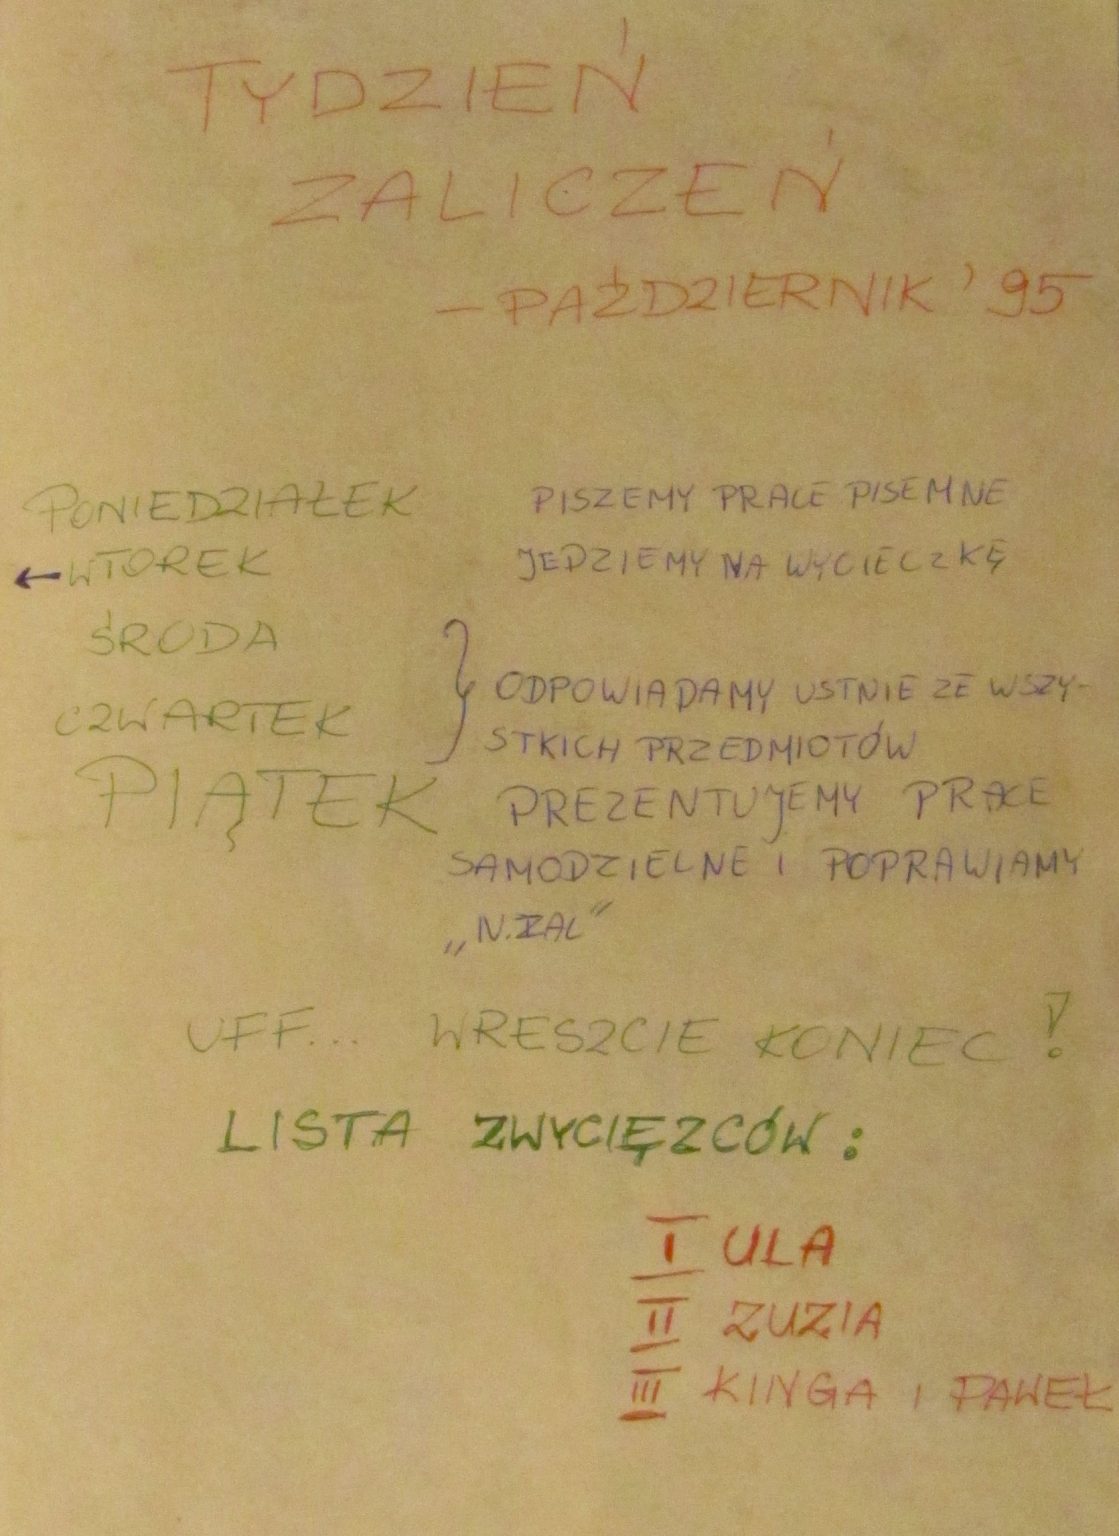 TYDZIEŃ
ZALICZEŃ
– PAŹDZIERNIK '95
PONIEDZIAŁEK PISZEMY PRACE PISEMNE
←WTOREK JEDZIEMY NA WYCIECZKĘ
ŚRODA
CZWARTEK } ODPOWIADAMY USTNIE ZE WSZY-
STKICH PRZEDMIOTÓW
PIĄTEK PREZENTUJEMY PRACE
SAMODZIELNE I POPRAWIAMY
„N.ZAL"
UFF... WRESZCIE KONIEC!
LISTA ZWYCIĘZCÓW:
I ULA
II ZUZIA
III KINGA I PAWEŁ